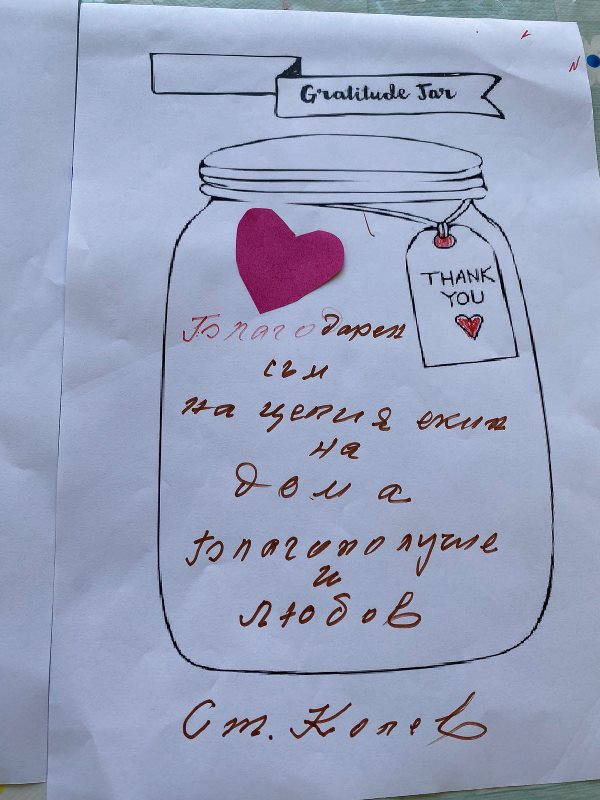 Gratitude Jar
THANK
YOU
Благодарен
съм
на целия екип
на
дома
Благополучие
и
любов
Ст. Колев